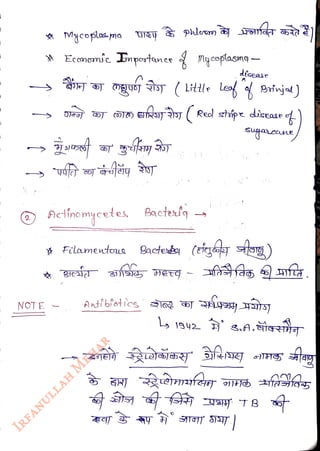 * Mycoplasma पादप के phloem को प्रभावित करते हैं।
* Economic Importance of Mycoplasma -
→ बैंगन का लघुपर्ण रोग ( Little Leaf disease of Brinjal )
→ गन्ने का लाल धारिया रोग ( Red stripe disease of sugarcane )
→ मूंगफली का कुर्चीसम रोग
→ पपीते का बंचीटॉप रोग
② Actinomycetes Bacteria →
* Filamentous Bacteria (तंतुकीय जीवाणु)
* अत्यंत आर्थिक महत्व - प्रतिजैविक की प्राप्ति.
NOTE - Antibiotics शब्द का सर्वप्रथम प्रयोग
↳ 1942 में S.A. वॉक्समैन
→ इनहोने स्ट्रेप्टोकॉकस ग्रेशियस नामक जीवाणु
के द्वारा स्ट्रेप्टोमायसिन नामक प्रतिजैविक
की खोज की जिसे प्रथम TB की
दवा के रूप में जाना गया |
IRFANULLAH